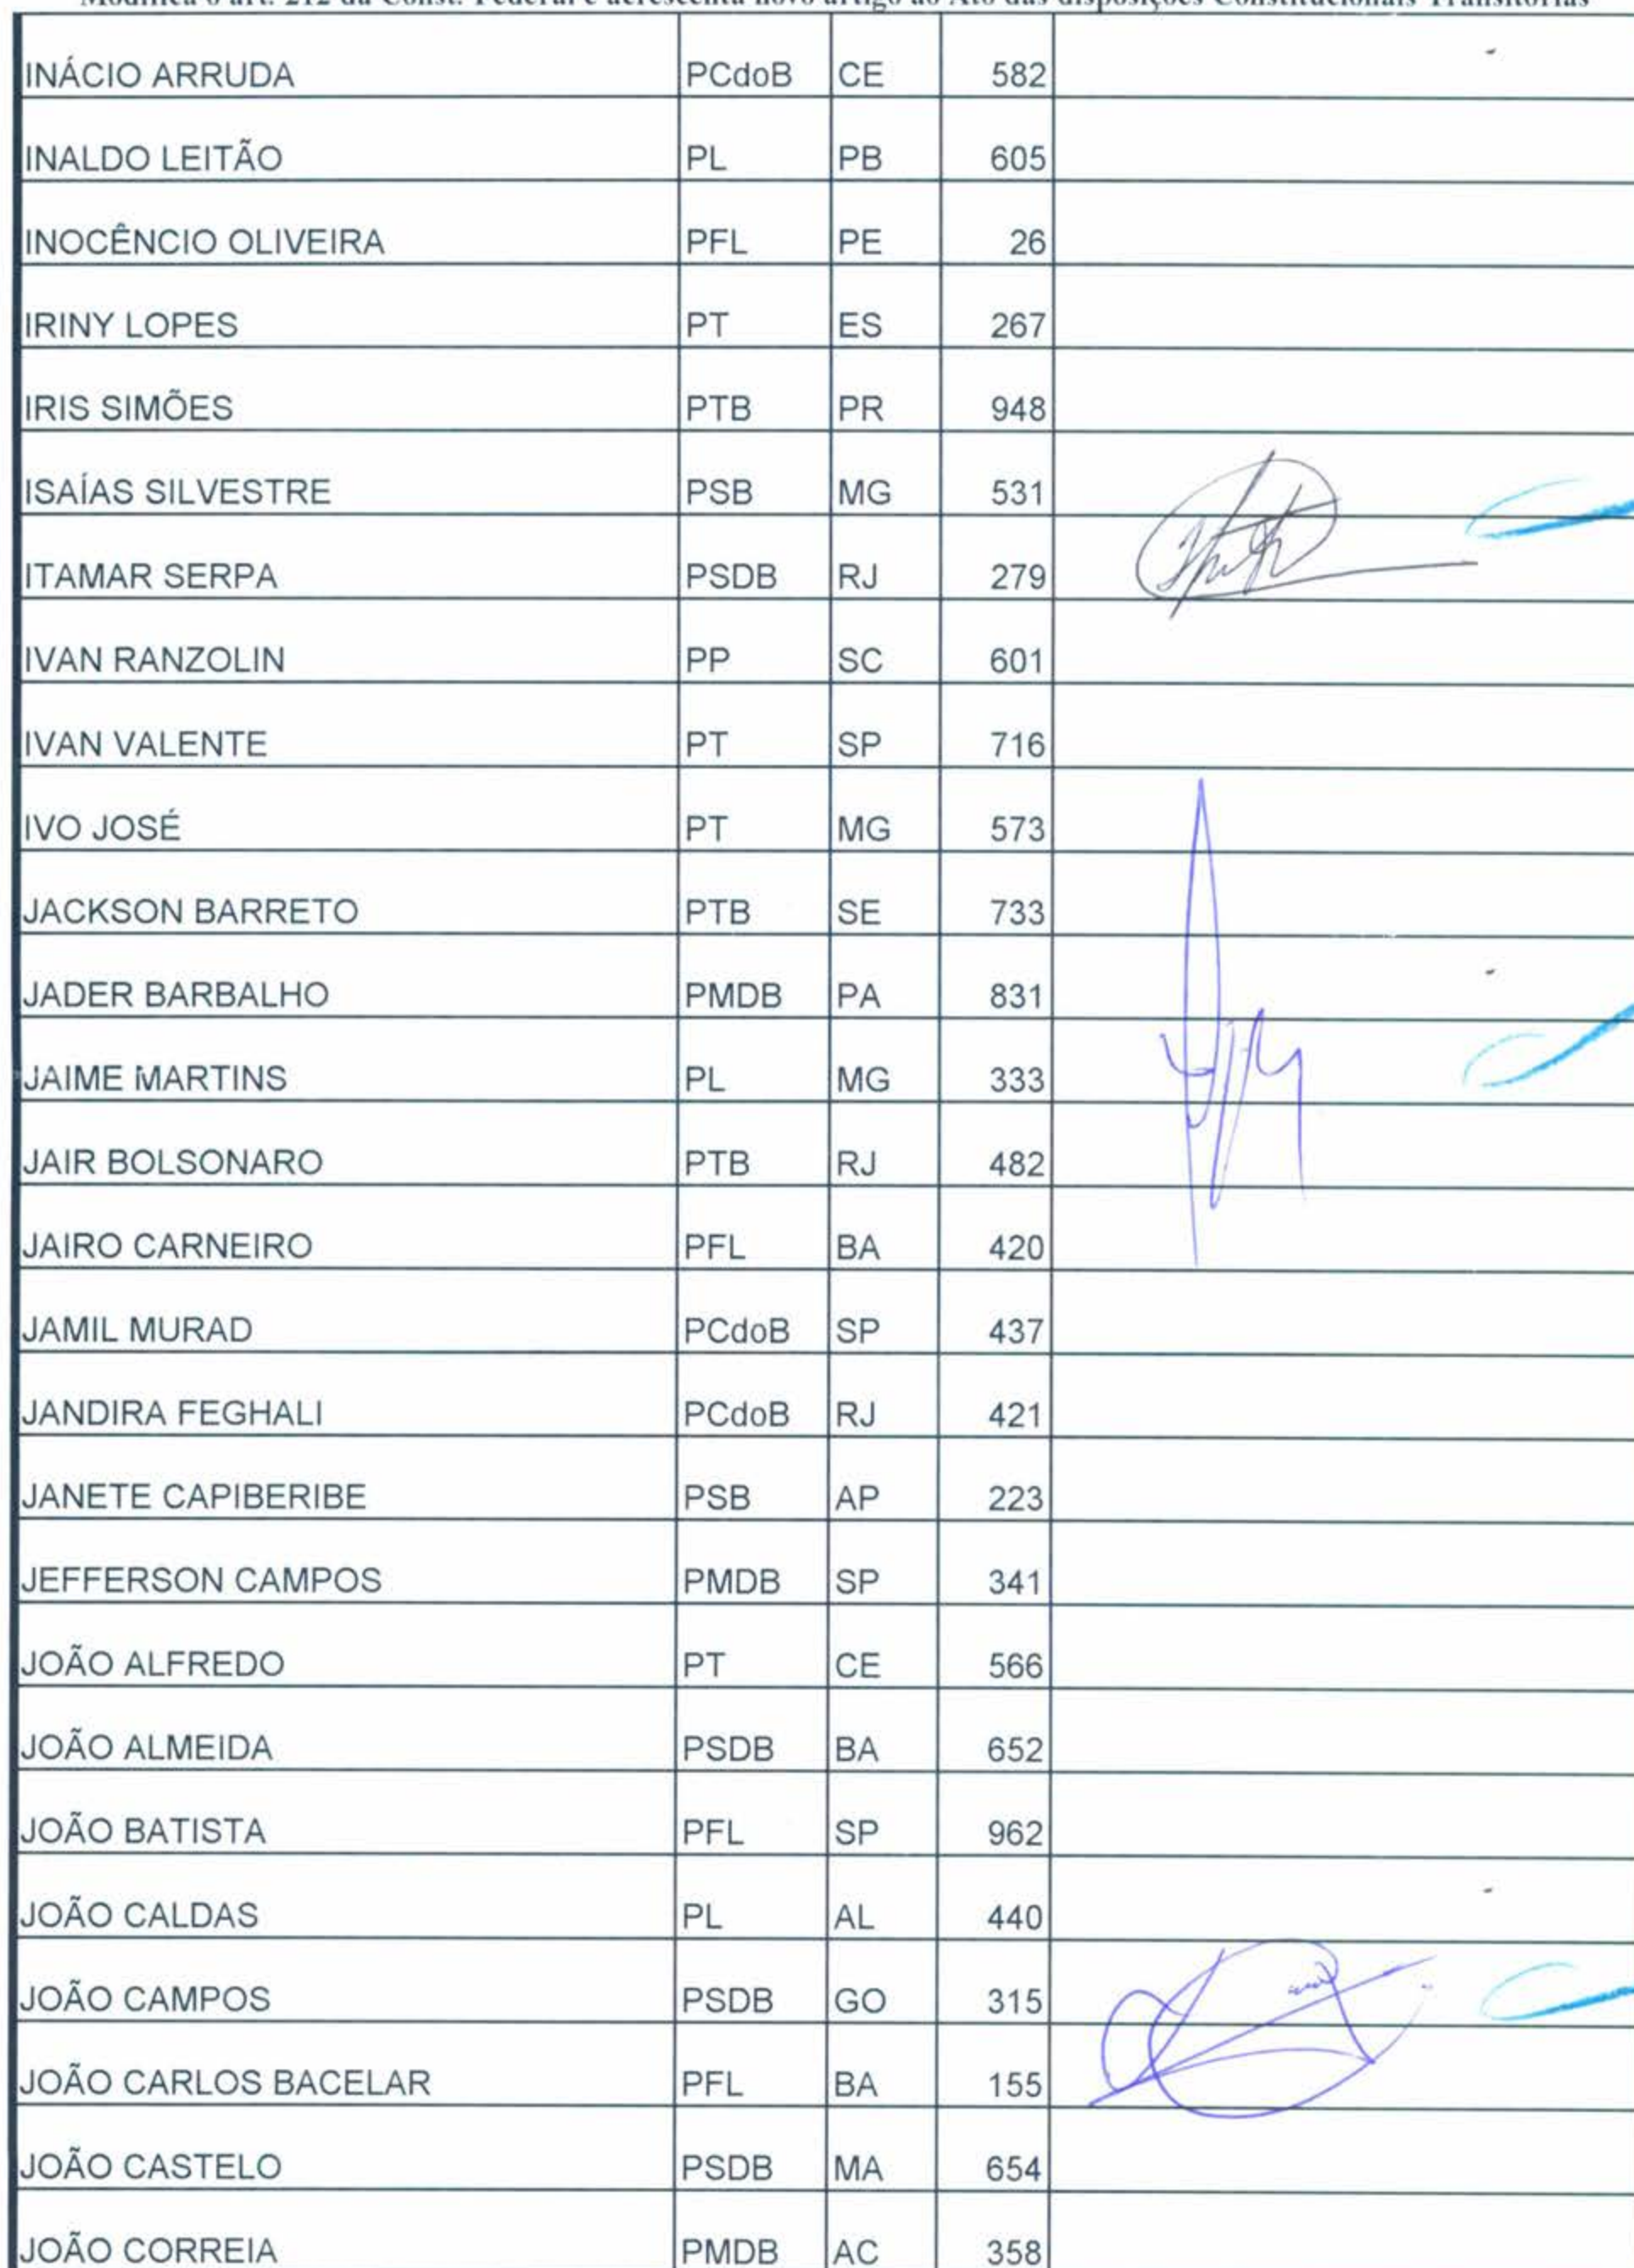 Modifica o art. 212 da Const. Federal e acrescenta novo artigo ao Ato das disposições Constitucionais Transitórias
INÁCIO ARRUDA PCdoB CE 582
INALDO LEITÃO PL PB 605
INOCÊNCIO OLIVEIRA PFL PE 26
IRINY LOPES PT ES 267
IRIS SIMÕES PTB PR 948
ISAÍAS SILVESTRE PSB MG 531
ITAMAR SERPA PSDB RJ 279
IVAN RANZOLIN PP SC 601
IVAN VALENTE PT SP 716
IVO JOSÉ PT MG 573
JACKSON BARRETO PTB SE 733
JADER BARBALHO PMDB PA 831
JAIME MARTINS PL MG 333
JAIR BOLSONARO PTB RJ 482
JAIRO CARNEIRO PFL BA 420
JAMIL MURAD PCdoB SP 437
JANDIRA FEGHALI PCdoB RJ 421
JANETE CAPIBERIBE PSB AP 223
JEFFERSON CAMPOS PMDB SP 341
JOÃO ALFREDO PT CE 566
JOÃO ALMEIDA PSDB BA 652
JOÃO BATISTA PFL SP 962
JOÃO CALDAS PL AL 440
JOÃO CAMPOS PSDB GO 315
JOÃO CARLOS BACELAR PFL BA 155
JOÃO CASTELO PSDB MA 654
JOÃO CORREIA PMDB AC 358